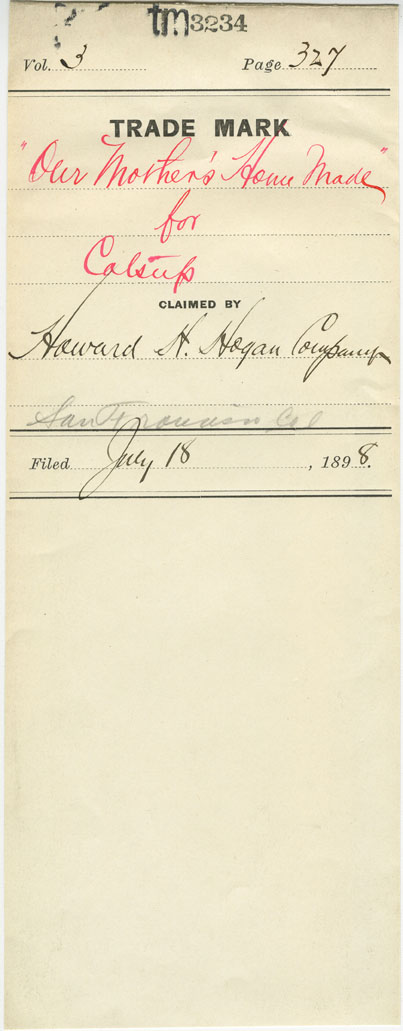 tm3234
Vol. 3 Page 327
TRADE MARK
"Our Mother's Home Made"
for
Catsup
CLAIMED BY
Howard H. Hogan Company
San Francisco, Cal
Filed July 18, 1898.